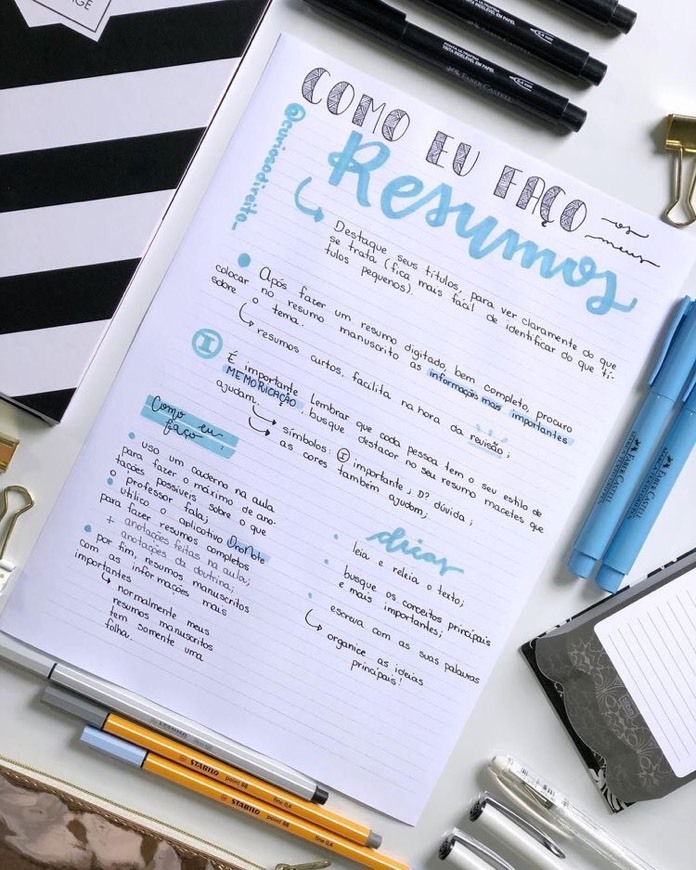 COMO EU FAÇO os meus
Resumos
@curiosodireito_
Destaque seus títulos, para ver claramente do que
se trata (fica mais fácil de identificar do que tí-
tulos pequenos).
Após fazer um resumo digitado, bem completo, procuro
colocar no resumo manuscrito as informações mais importantes
sobre o tema.
resumos curtos, facilita na hora da revisão;
I
É importante lembrar que cada pessoa tem o seu estilo de
MEMORIZAÇÃO, busque destacar no seu resumo macetes que
ajudam.
símbolos: I importante; D? dúvida;
as cores também ajudam;
Como eu
faço:
uso um caderno na aula
para fazer o máximo de ano-
tações possíveis sobre o que
o professor fala;
utilizo o aplicativo OneNote
para fazer resumos completos
+ anotações feitas na aula;
anotações da doutrina;
por fim, resumos manuscritos
com as informações mais
importantes
normalmente meus
resumos manuscritos
tem somente uma
folha.
dicas
leia e releia o texto;
busque os conceitos principais
e mais importantes;
escreva com as suas palavras
organize as ideias
principais!
FABER-CASTELL
FABER-CASTELL
FABER-CASTELL
FABER-CASTELL
STABILO point 88 fine 0.4
STABILO point 88 fine 0.4